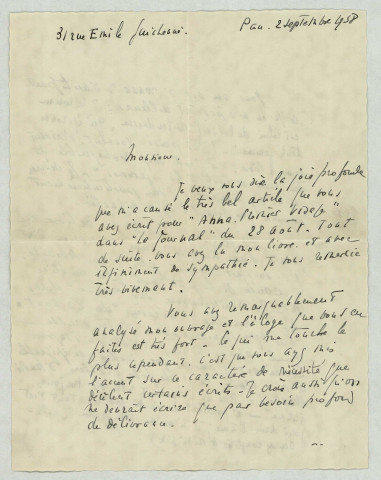 31 rue Emile Guichenné. Pau. 2 septembre 1958
Monsieur.
Je veux vous dire la joie profonde
que m'a causé le très bel article que vous
avez écrit pour "Anna
dans "le Journal" du 28 août. Tout
de suite, vous avez lu mon livre et avec
infiniment de sympathie. Je vous remercie
très vivement.
Vous avez remarquablement
analysé mon ouvrage et l'éloge que vous en
faites est très fort. Ce qui me touche le
plus cependant, c'est que vous ayez mis
l'accent sur le caractère de nécessité que
revêtent certains écrits. Je crois aussi qu'on
ne devrait écrire que par besoin profond
de délivrance.